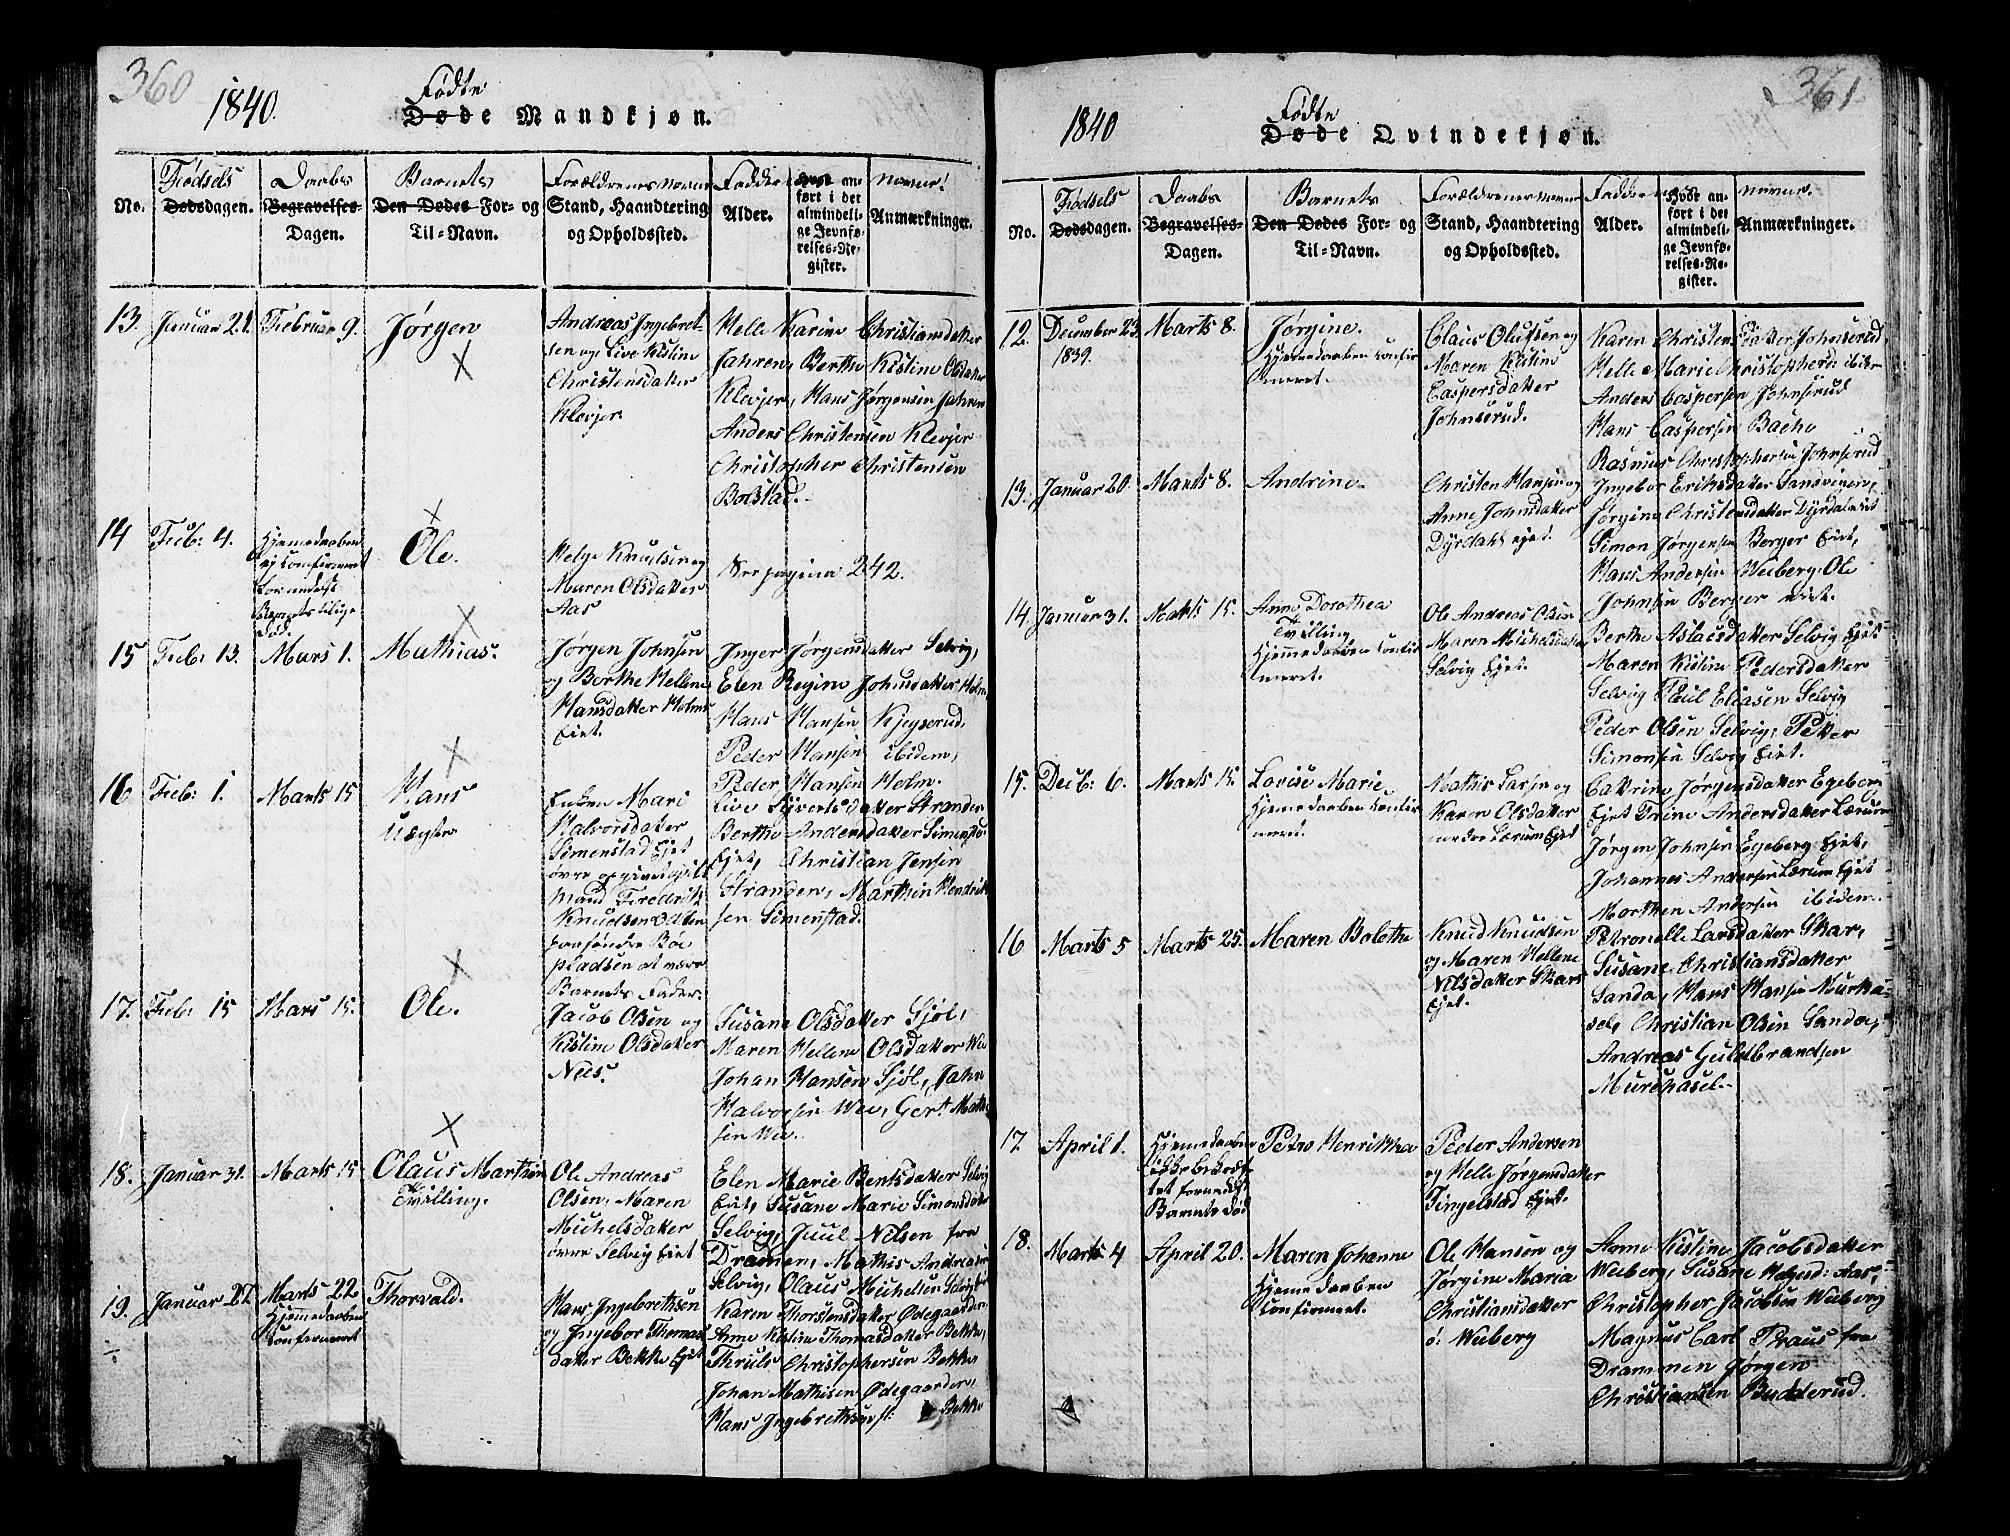 360
1840.
Fødte
Døde Mandkjøn.
No.
Fødsels
Dødsdagen.
Daabs
Begravelses-
Dagen.
Barnets
Den Dødes For- og
Til-Navn.
Forældrenes Navne
Stand, Haandtering
og Opholdssted.
Faddernes Navne.
Alder.
Hvor an-
ført i det
almindeli-
ge Jevnfø-
relses-Re-
gister.
Anmærkninger.
13. Januar 21. Februar 9. Jørgen
Andreas Ingebret-
sen og Live Kistine
Christensdatter
Klevjer
Helle Karine Christiansdatter
Jahren, Berthe Kistine Olsdatter
Klevjer, Hans Jørgensen Jahren
Anders Christensen Klevjer
Christopher Christensen
Bolstad.
14 Feb: 4.
Hjemmedøbt
ej confirmeret
formedelst
Barnets tilige
Død.
Ole.
Helge Knudsen og
Maren Olsdatter
Aas
See pagina 242.
15 Feb: 13. Mars 1. Mathias.
Jørgen Johnsen
og Berthe Hellene
Hansdatter Holms
Ejet.
Inger Jørgensdatter Selvig,
Elen Regine Johnsdatter Holm
Hans Hansen Kjegserud,
Peder Hansen ibidem,
Peder Hansen Holm.
16 Feb: 1. Marts 15 Hans
Uægte
Enken Mari
Halvorsdatter
Simenstad Ejet
Mand Fredrik
Knudsen
Pladsen at være
Barnets Fader.
Live Syvertsdatter Stranden
Berthe Andersdatter Simenstad
Ejet, Christian Jensen
Stranden, Marthin Hendrik-
sen Simenstad.
17. Feb: 15 Mars 15. Ole.
Jacob Olsen og
Kistine Olsdatter
Næs.
Susane Olsdatter Sjøl,
Maren Hellene Olsdatter Wee
Johan Hansen Sjøl, Jahn
Halvorsen Wee, Gert Mathi-
sen Wee.
18. Januar 31. Marts 15 Olaus Marthin
Tvilling.
Ole Andreas
Olsen, Maren
Michelsdatter
øvre Selvig Ejet
Elen Marie Bentsdatter Selvig
Eiet, Susane Marie Simonsdatter
Selvig, Juul Nilsen fra
Dramen, Mathis Andreasen
Selvig, Olaus Michelsen Selvig
19. Januar 27. Marts 22
Hjemmedøbt
Confirmeret
Thorvald.
Hans Ingebrethsen
og Ingebor Thomas-
datter Bekke Ejet
Karen Thorstensdatter Ødegaarden
Anne Kistine Thomasdatter Bekke,
Thruls Christophersen Bekke
Johan Mathisen Ødegaarden,
Hans Ingebrethsen Bekke
361
1840
Fødte
Døde Qvindekjøn.
No.
Fødsels
Dødsdagen.
Daabs
Begravelses-
Dagen.
Barnets
Den Dødes For- og
Til-Navn.
Forældrenes Navne
Stand, Haandtering
og Opholdssted.
Faddernes Navne.
Alder.
Hvor an-
ført i det
almindeli-
ge Jevnfø-
relses-Re-
gister.
Anmærkninger.
12. December 23.
1839.
Marts 8. Jørgine.
Hjemmedøbt confir-
meret.
Claus Olufsen og
Maren Kistine
Caspersdatter
Johnserud.
Karen Christensdatter Johnserud
Helle Marie Christophersd: ibidem
Anders Caspersen Johnserud
Hans Caspersen Bache
Rasmus Christophersen Johnserud
13. Januar 20. Marts 8. Andrine.
Christen Hansen og
Anne Johnsdatter
Dyrdahls ejet.
Ingebor Eriksdatter Sandvigen,
Jørgine Christensdatter Dyrdals Eiet
Simon Jørgensen Berger Eiet,
Hans Andersen Weiberg, Ole
Johnsen Berger Eiet.
14 Januar 31. Marts 15. Anne Dorothea
Tvilling
Hjemmedøbt confir-
meret.
Ole Andreas Olsen
Maren Michelsdatter
Selvig Ejet.
Berthe Aslacsdatter Selvig Ejet
Maren Kistine Pedersdatter
Selvig Paul Eliasen Selvig
Peder Olsen Selvig, Petter
Simonsen Selvig Ejet.
15. Decb: 6. Marts 15. Lovise Marie
Hjemmedøbt confir-
meret.
Mathis Larsen og
Karen Olsdatter
nedre Lærum Ejet
Cathrine Jørgensdatter Egeberg
Ejet Trine Andersdatter Lærum
Jørgen Johnsen Egeberg Ejet,
Johannes Andersen Lærum Ejet
Morthen Andersen ibidem.
16 Marts 5 Marts 25. Maren Bolethe
Knud Knudsen
og Maren Hellene
Nilsdatter Skars
Ejet.
Petronelle Larsdatter Skar,
Susane Christiansdatter
Sanda, Hans Hansen Murha-
sel, Christian Olsen Sanda,
Andreas Guldbrandsen
Murehasel.
17. April 1.
Hjemmedøbt
ikke bekræf-
tet formedelst
Barnets Død
Petra Henrikka
Peder Andersen
og Helle Jørgensdatter
Tingelstad Ejet.
18. Marts 4 April 20. Maren Johanne
Hjemmedøbt
confirmeret.
Ole Hansen og
Jørgine Maria
Christiansdatter
ø: Weiberg
Anne Kistine Jacobsdatter
Weiberg, Susane Helgesd: Aas,
Christopher Jacobsen Weiberg
Magnus Carl Praus fra
Drammen Jørgen
Christiansen Budderud.